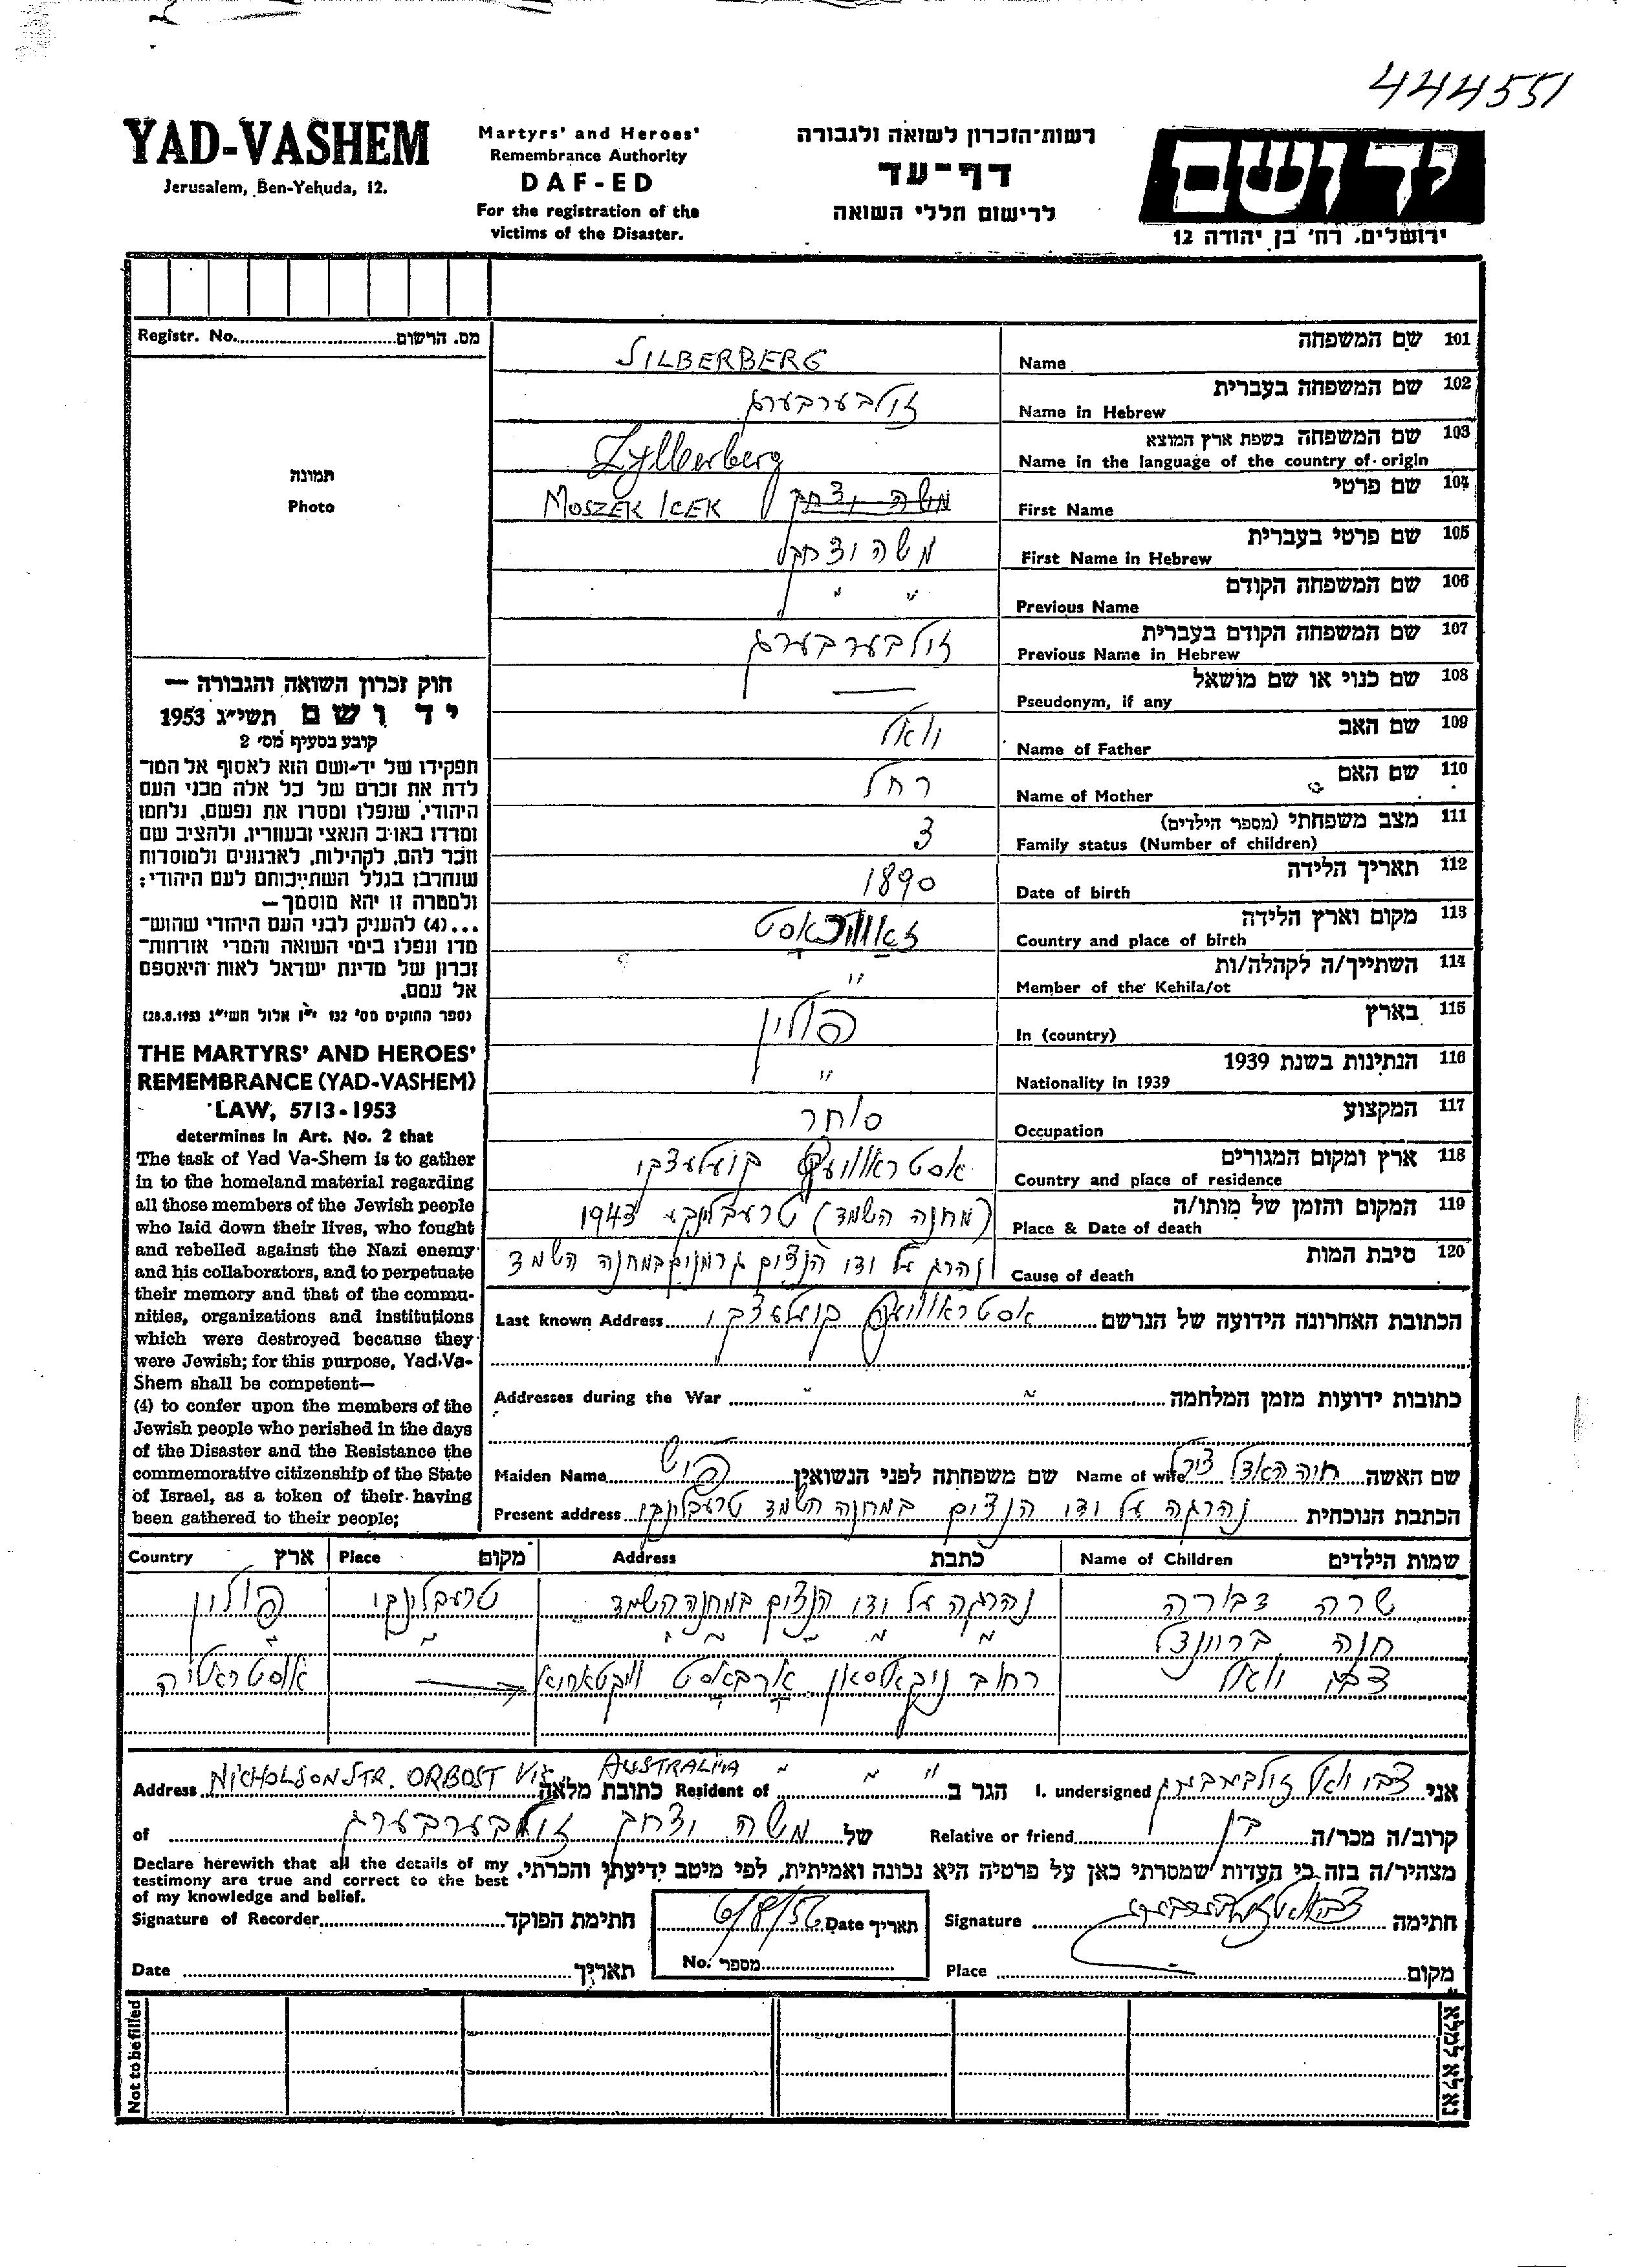 444551
YAD-VASHEM
Jerusalem, Ben-Yehuda, 12.
Martyrs' and Heroes'
Remembrance Authority
DAF-ED
For the registration of the
victims of the Disaster.
רשות־הזכרון לשואה ולגבורה
דף־עד
לרישום חללי השואה
יד ושם
ירושלים, רח' בן יהודה 12
Registr. No. מס. הרשום
תמונה
Photo
101 שם המשפחה
Name
SILBERBERG
102 שם המשפחה בעברית
Name in Hebrew
זילבערבערג
103 שם המשפחה בשפת ארץ המוצא
Name in the language of the country of origin
Zylberberg
104 שם פרטי
First Name
MOSZEK ICEK משה יצחק
105 שם פרטי בעברית
First Name in Hebrew
משה יצחק
106 שם המשפחה הקודם
Previous Name
" "
107 שם המשפחה הקודם בעברית
Previous Name in Hebrew
זילבערבערג
108 שם כנוי או שם מושאל
Pseudonym, if any
—
109 שם האב
Name of Father
110 שם האם
Name of Mother
רחל
111 מצב משפחתי (מספר הילדים)
Family status (Number of children)
3
112 תאריך הלידה
Date of birth
1890
113 מקום וארץ הלידה
Country and place of birth
114 השתייך/ה לקהלה/ות
Member of the Kehila/ot
"
115 בארץ
In (country)
פולין
116 הנתינות בשנת 1939
Nationality in 1939
"
117 המקצוע
Occupation
סוחר
118 ארץ ומקום המגורים
Country and place of residence
קיעלצקי
119 המקום והזמן של מותו/ה
Place & Date of death
(מחנה השמד) טרעבלינקע 1943
120 סיבת המות
Cause of death
נהרג על ידי הנצים גרמנים במחנה השמד
הכתובת האחרונה הידועה של הנרשם
Last known Address
קיעלצקי
כתובות ידועות מזמן המלחמה " "
Addresses during the War
שם האשה חיה Name of wife
שם משפחתה לפני הנשואין Maiden Name
הכתבת הנוכחית נהרגה על ידי הנצים במחנה השמד טרעבלינקי
Present address
שמות הילדים Name of Children כתבת Address מקום Place ארץ Country
שרה דבורה נהרגה על ידי הנצים במחנה השמד טרעבלינקי פולין
חנה " " " " " " "
צבי רחוב ניקאלסאן ארבאסט וויקטאריא אוסטראליה
אני צבי זילבערבערג I. undersigned
הגר ב " " " Resident of
כתובת מלאה Address NICHOLSON STR. ORBOST VIC. AUSTRALIA
קרוב/ה מכר/ה בן Relative or friend
של משה יצחק זילבערבערג of
מצהיר/ה בזה כי העדות שמסרתי כאן על פרטיה היא נכונה ואמיתית, לפי מיטב ידיעתי והכרתי.
Declare herewith that all the details of my
testimony are true and correct to the best
of my knowledge and belief.
חתימה Signature
תאריך Date 6/8/56
חתימת הפוקד Signature of Recorder
מקום Place
מספר No.
תאריך Date
חוק זכרון השואה והגבורה —
יד ושם תשי״ג 1953
קובע בסעיף מס׳ 2
תפקידו של יד-ושם הוא לאסוף אל המו־
לדת את זכרם של כל אלה מבני העם
היהודי, שנפלו ומסרו את נפשם, נלחמו
ומרדו באויב הנאצי ובעוזריו, ולהציב שם
וזכר להם, לקהילות, לארגונים ולמוסדות
שנחרבו בגלל השתייכותם לעם היהודי;
ולמטרה זו יהא מוסמך—
...(4) להעניק לבני העם היהודי שהוש־
מדו ונפלו בימי השואה והמרי אזרחות־
זכרון של מדינת ישראל לאות היאספם
אל עמם.
(ספר החוקים מס׳ 132 י״ז אלול תשי״ג 28.8.1953)
THE MARTYRS' AND HEROES'
REMEMBRANCE (YAD-VASHEM)
LAW, 5713-1953
determines in Art. No. 2 that
The task of Yad Va-Shem is to gather
in to the homeland material regarding
all those members of the Jewish people
who laid down their lives, who fought
and rebelled against the Nazi enemy
and his collaborators, and to perpetuate
their memory and that of the commu-
nities, organizations and institutions
which were destroyed because they
were Jewish; for this purpose, Yad Va-
Shem shall be competent—
(4) to confer upon the members of the
Jewish people who perished in the days
of the Disaster and the Resistance the
commemorative citizenship of the State
of Israel, as a token of their having
been gathered to their people;
Not to be filled
נא לא למלא